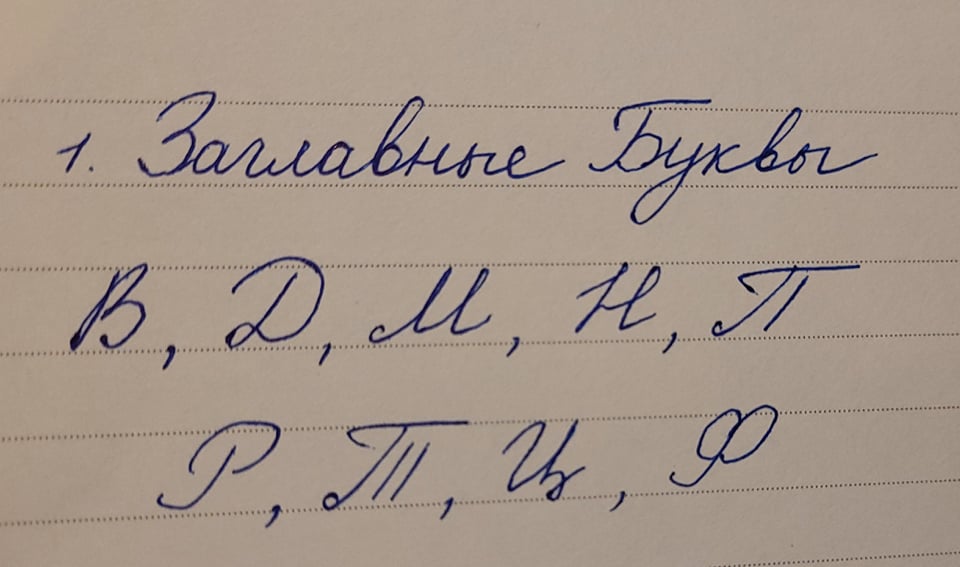 1. Заглавные Буквы
В, Д, М, Н, П
Р, Т, Ц, Ф